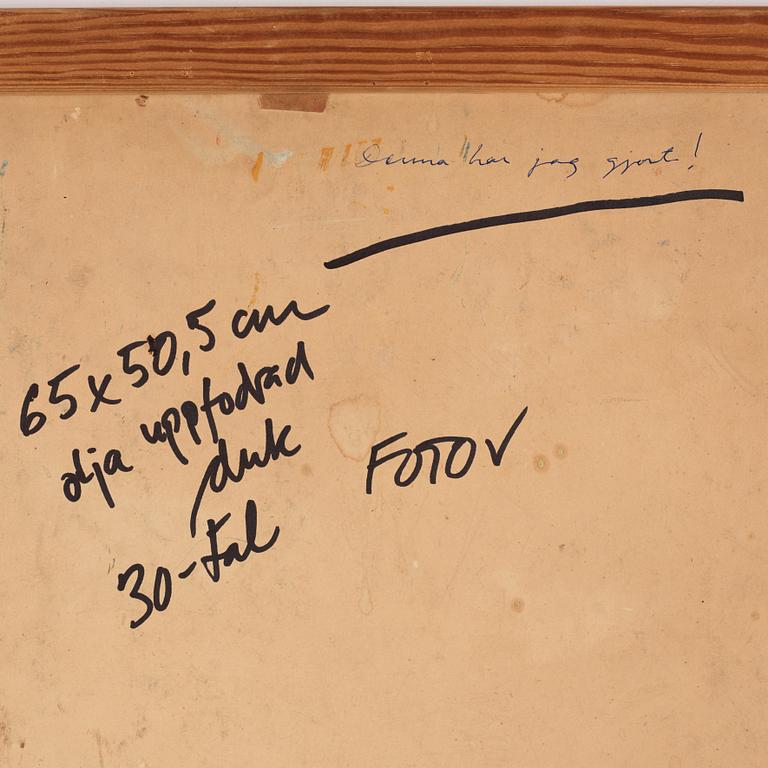 Denna har jag gjort!
65x50,5 cm
olja uppfodrad
duk
30-tal
FOTO ✓